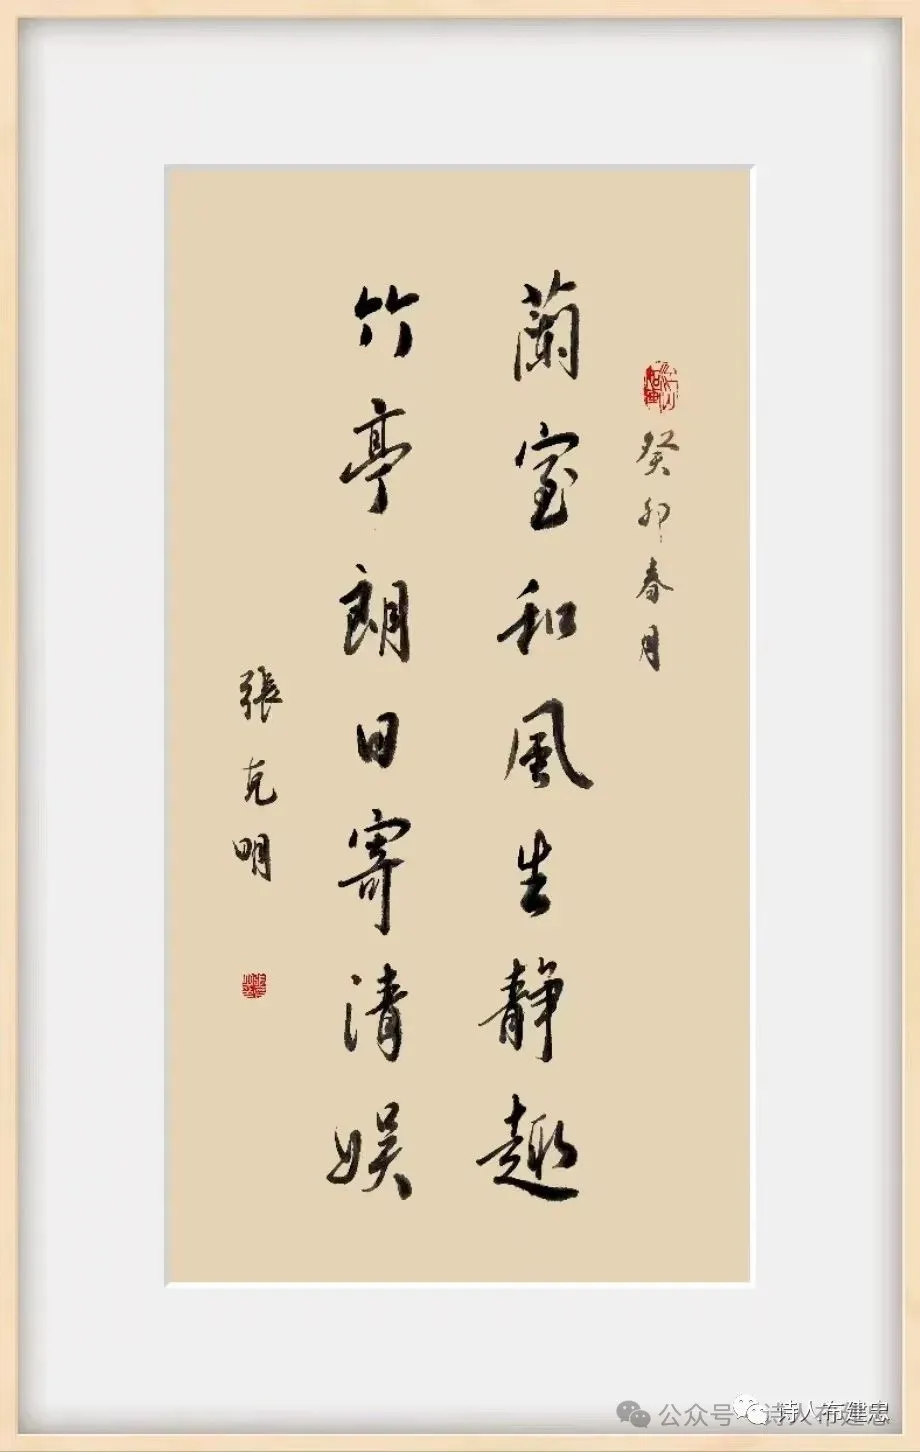 癸卯春月
蘭室和風生静趣
竹亭朗日寄清娱
張克明
公众号
诗人布建忠